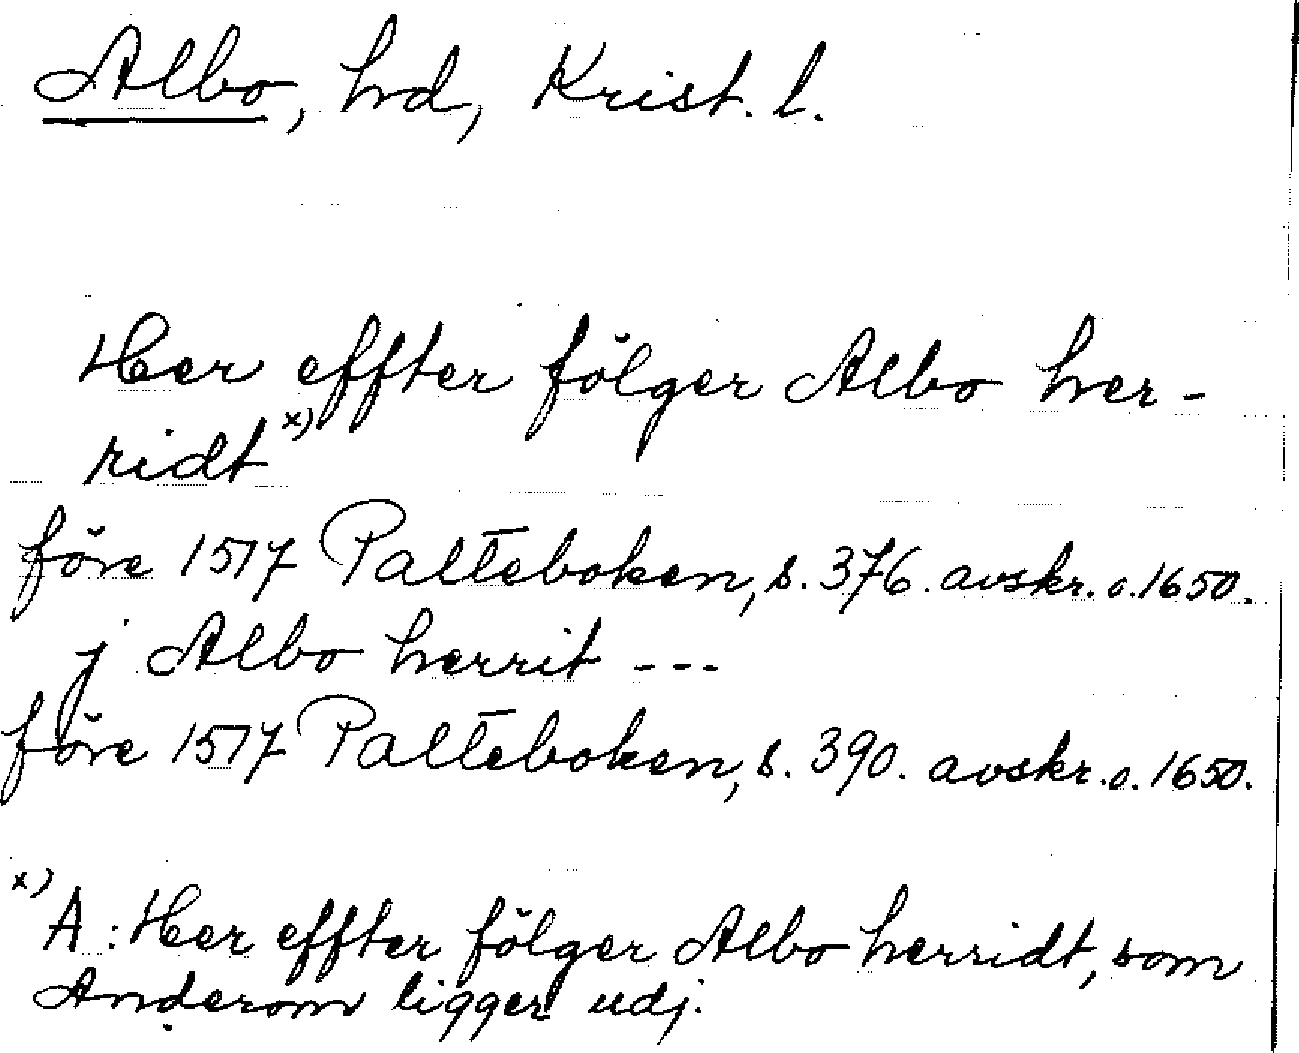 Albo, hrd, Krist. l.
Her effter fölger Albo her-
ridt x)
före 1517 Palteboken, s. 376. avskr. o. 1650.
j Albo herrit ---
före 1517 Palteboken, s. 390. avskr. o. 1650.
x) A: Her effter fölger Albo herridt, som
Anderom ligger udj.